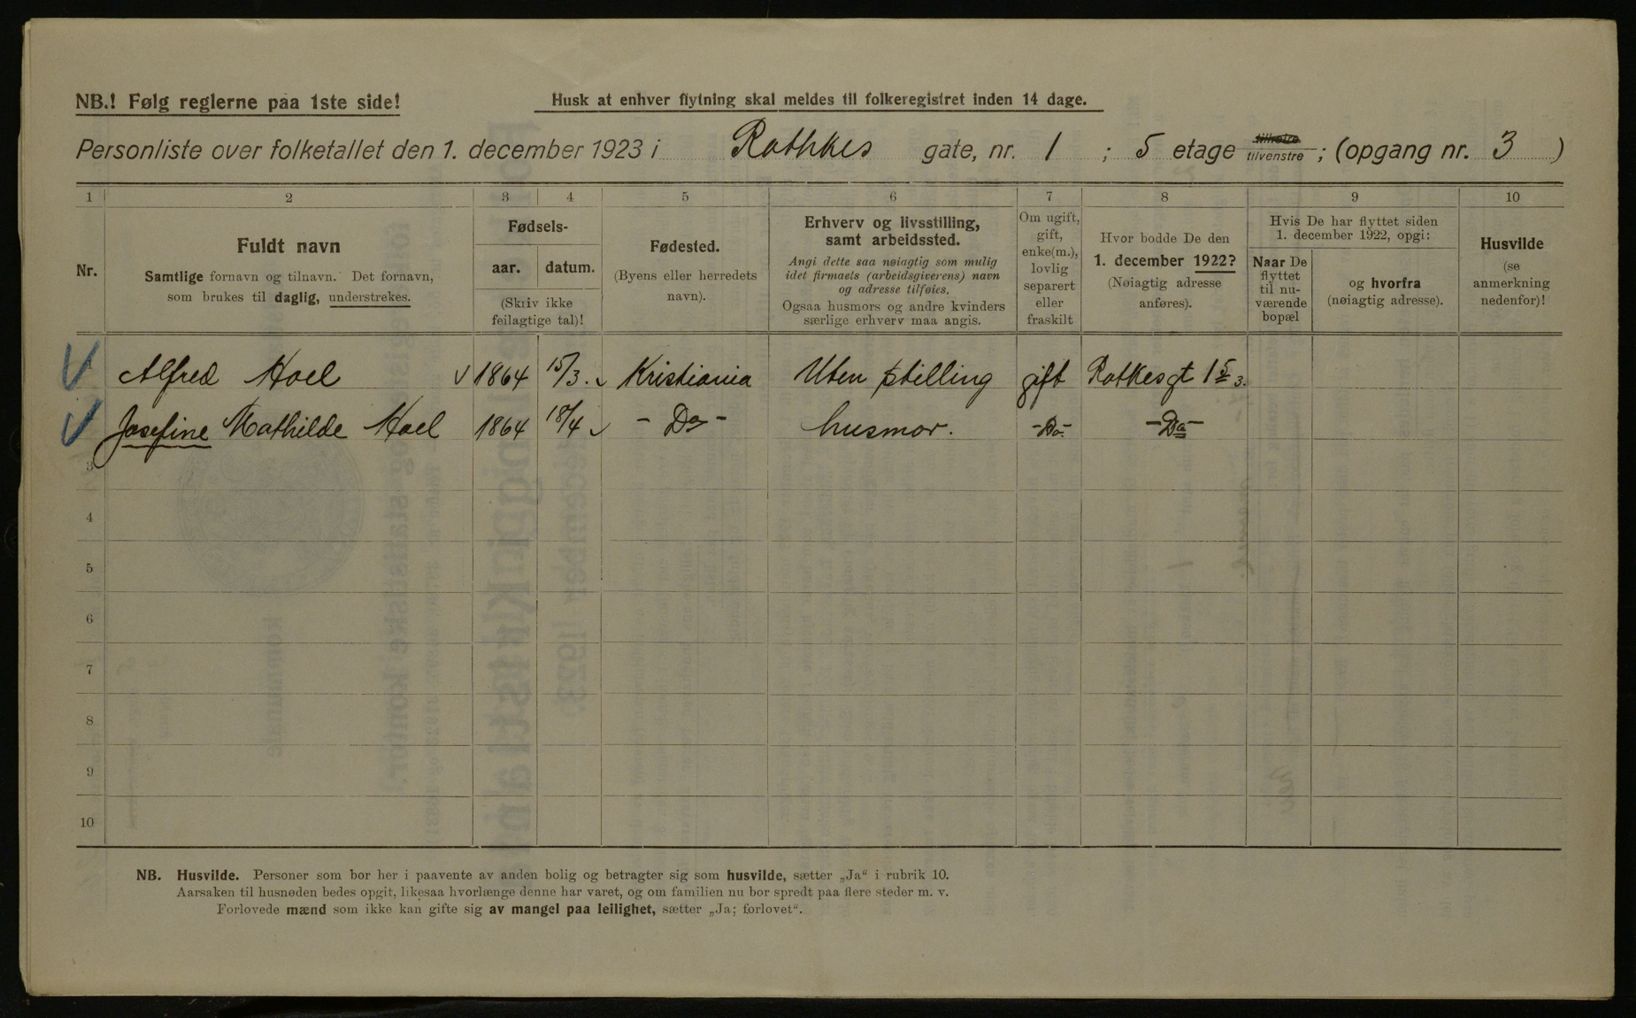 NB.! Følg reglerne paa 1ste side!
Husk at enhver flytning skal meldes til folkeregistret inden 14 dage.
Personliste over folketallet den 1. december 1923 i Rathkes gate, nr. 1 ; 5 etage tilhøire tilvenstre ; (opgang nr. 3 )
1 2 3 4 5 6 7 8 9 10
Nr.
Fuldt navn
Samtlige fornavn og tilnavn. Det fornavn,
som brukes til daglig, understrekes.
Fødsels-
aar. datum.
(Skriv ikke
feilagtige tal)!
Fødested.
(Byens eller herredets
navn).
Erhverv og livsstilling,
samt arbeidssted.
Angi dette saa nøiagtig som mulig
idet firmaets (arbeidsgiverens) navn
og adresse tilføies.
Ogsaa husmors og andre kvinders
særlige erhverv maa angis.
Om ugift,
gift,
enke(m.),
lovlig
separert
eller
fraskilt
Hvor bodde De den
1. december 1922?
(Nøiagtig adresse
anføres).
Hvis De har flyttet siden
1. december 1922, opgi:
Naar De
flyttet
til nu-
værende
bopæl
og hvorfra
(nøiagtig adresse).
Husvilde
(se
anmerkning
nedenfor)!
Alfred Hoel 1864 15/3. Kristiania Uten stilling gift Ratkesgt 1 5 3.
Josefine Mathilde Hoel 1864 18/4 - Do - husmor. - Do - - Do -
3
4
5
6
7
8
9
10
NB. Husvilde. Personer som bor her i paavente av anden bolig og betragter sig som husvilde, sætter „Ja“ i rubrik 10.
Aarsaken til husnøden bedes opgit, likesaa hvorlænge denne har varet, og om familien nu bor spredt paa flere steder m. v.
Forlovede mænd som ikke kan gifte sig av mangel paa leilighet, sætter „Ja; forlovet“.